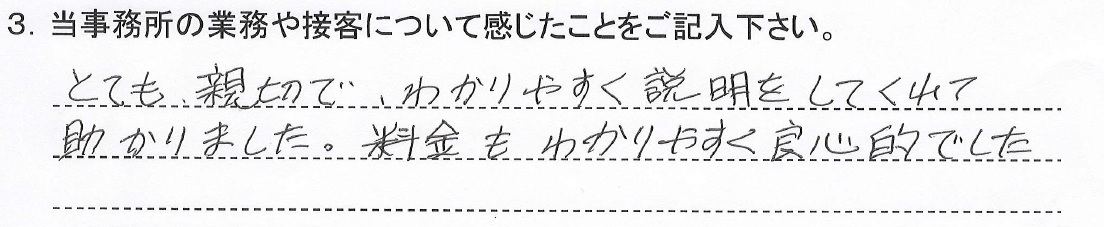 3. 当事務所の業務や接客について感じたことをご記入下さい。
とても、親切で、わかりやすく説明をしてくれて
助かりました。料金もわかりやすく良心的でした